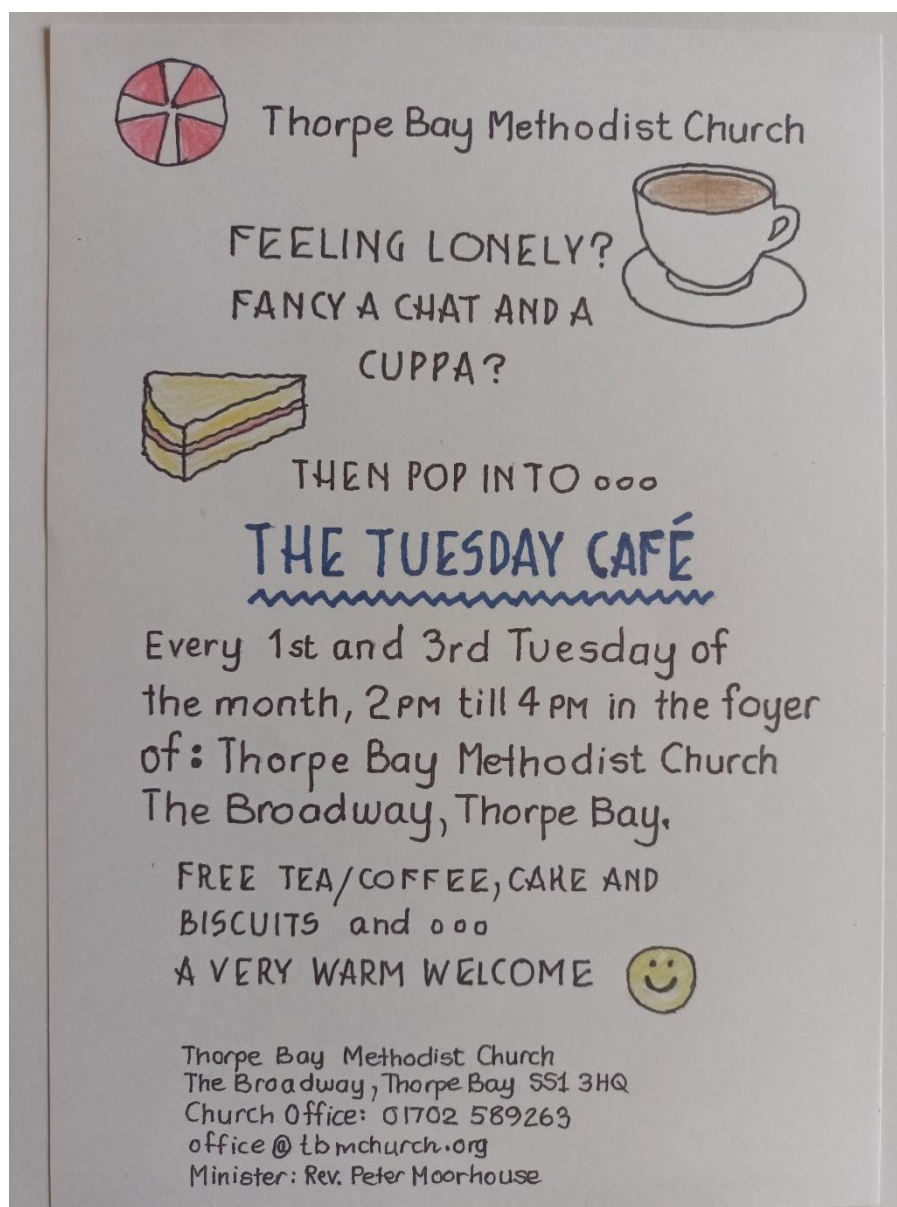 Thorpe Bay Methodist Church
FEELING LONELY?
FANCY A CHAT AND A
CUPPA?
THEN POP INTO ...
THE TUESDAY CAFÉ
Every 1st and 3rd Tuesday of
the month, 2PM till 4PM in the foyer
of: Thorpe Bay Methodist Church
The Broadway, Thorpe Bay.
FREE TEA/COFFEE, CAKE AND
BISCUITS and ...
A VERY WARM WELCOME
Thorpe Bay Methodist Church
The Broadway, Thorpe Bay SS1 3HQ
Church Office: 01702 589263
office@tbmchurch.org
Minister: Rev. Peter Moorhouse